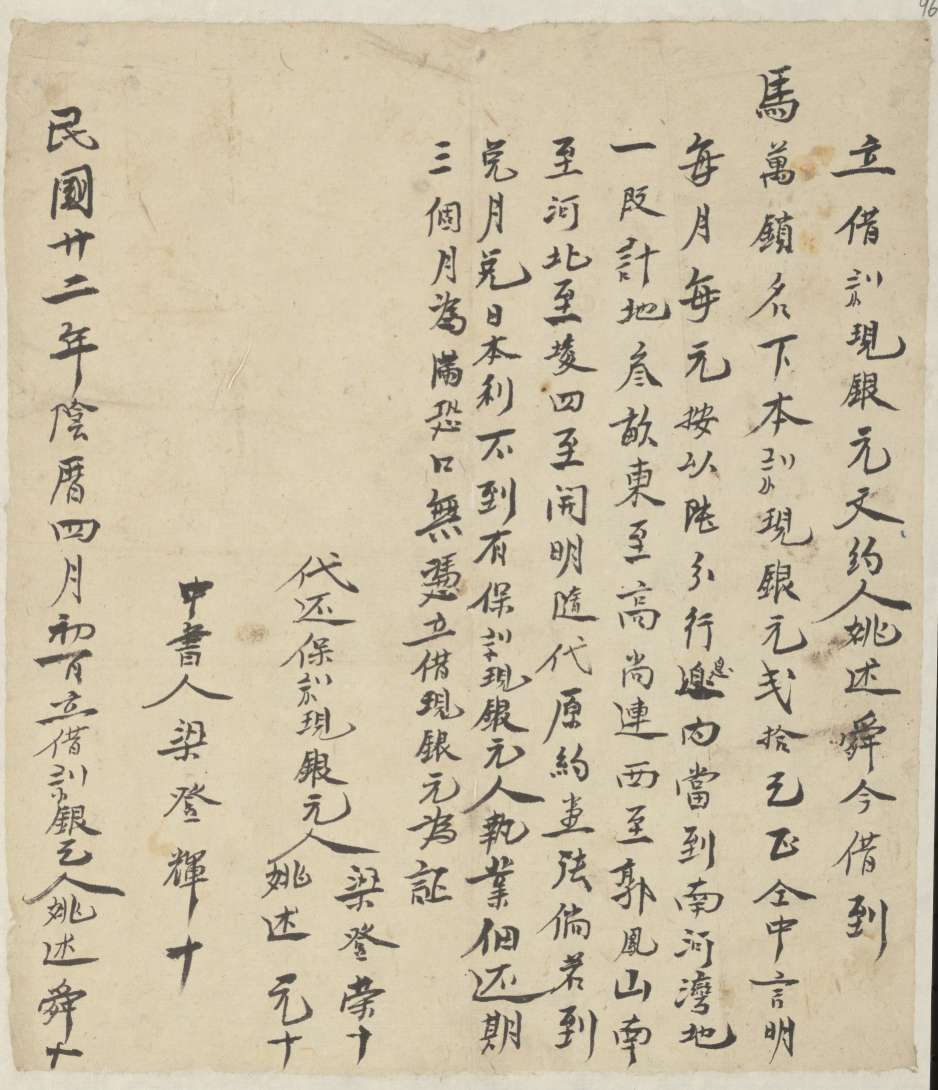 96
立借現銀元文約人姚述舜今借到
馬萬鎖名下本現銀元弍拾元正仝中言明
每月每元按以陸分行息內當到南河灣地
一段計地叁畝東至高尚連西至郭鳳山南
至河北至堎四至開明隨代原約壹張倘若到
兑月兑日本利不到有保現銀元人執業佃还期
三個月為滿恐口無憑立借現銀元為証
代还保現銀元人梁登荣十
姚述元十
中書人梁登輝十
民國廿二年陰曆四月初一日立借銀元人姚述舜十